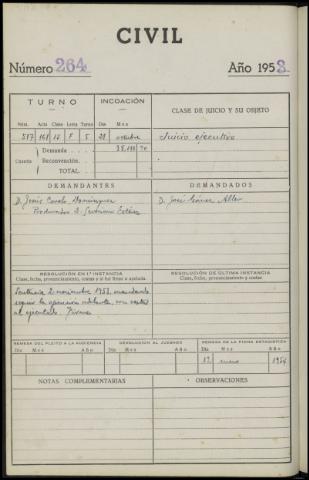 CIVIL
Número 264 Año 1953
TURNO INCOACIÓN CLASE DE JUICIO Y SU OBJETO
Núm. Acto Clase Letra Turno Día Mes
517 168 12 F 5 28 octubre Juicio ejecutivo
Cuantía Demanda
Reconvención
TOTAL
DEMANDANTES DEMANDADOS
D. Jesús Domínguez D. José Gómez Aller
Procurador D.
RESOLUCIÓN EN 1ª INSTANCIA RESOLUCIÓN DE ÚLTIMA INSTANCIA
Clase, fecha, pronunciamiento, costas y si fué firme o apelada Clase, fecha, pronunciamiento y costas
Sentencia 2 noviembre 1953, mandando
seguir la ejecución adelante, con costas
al ejecutado. Firme
REMESA DEL PLEITO A LA AUDIENCIA DEVOLUCIÓN AL JUZGADO REMESA DE LA FICHA ESTADÍSTICA
Día Mes Año Día Mes Año Día Mes Año
12 enero 1954
NOTAS COMPLEMENTARIAS OBSERVACIONES